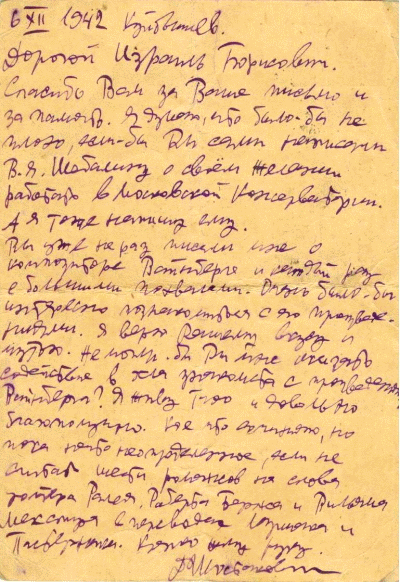 6 XII 1942 Куйбышев.
Дорогой Израиль Борисович.
Спасибо Вам за Ваше письмо и
за память. Я думаю, что было-бы не
плохо, если-бы Вы сами написали
В.Я. Шебалину о своём желании
работать в Московской Консерватории.
А я тоже напишу ему.
Вы уже не раз писали мне о
композиторе Вайнберге и каждый раз
с большими похвалами. Очень было-бы
интересно познакомиться с его произве-
ниями. Я верю Вашему вкусу и
чутью. Не могли-бы Вы мне оказать
содействие в знакомства с произведениями
Вайнберга? Я живу тихо и довольно
благополучно. Кое что сочиняю, но
пока нечто неопределенное, если не
считать шести романсов на слова
Вальтера Ралея, Роберта Бернса и Вильяма
Шекспира в переводах Маршака и
Пастернака. Крепко жму руку.
Д. Шостакович